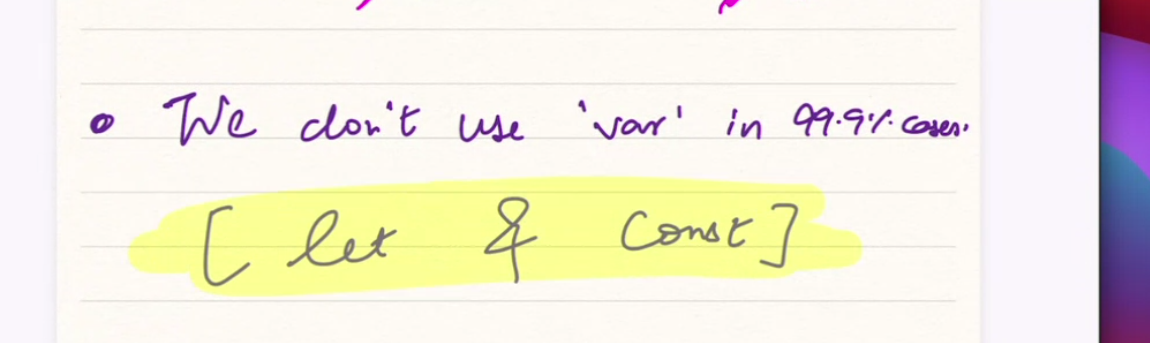 • We don't use 'var' in 99.9% cases.
[ let & const ]